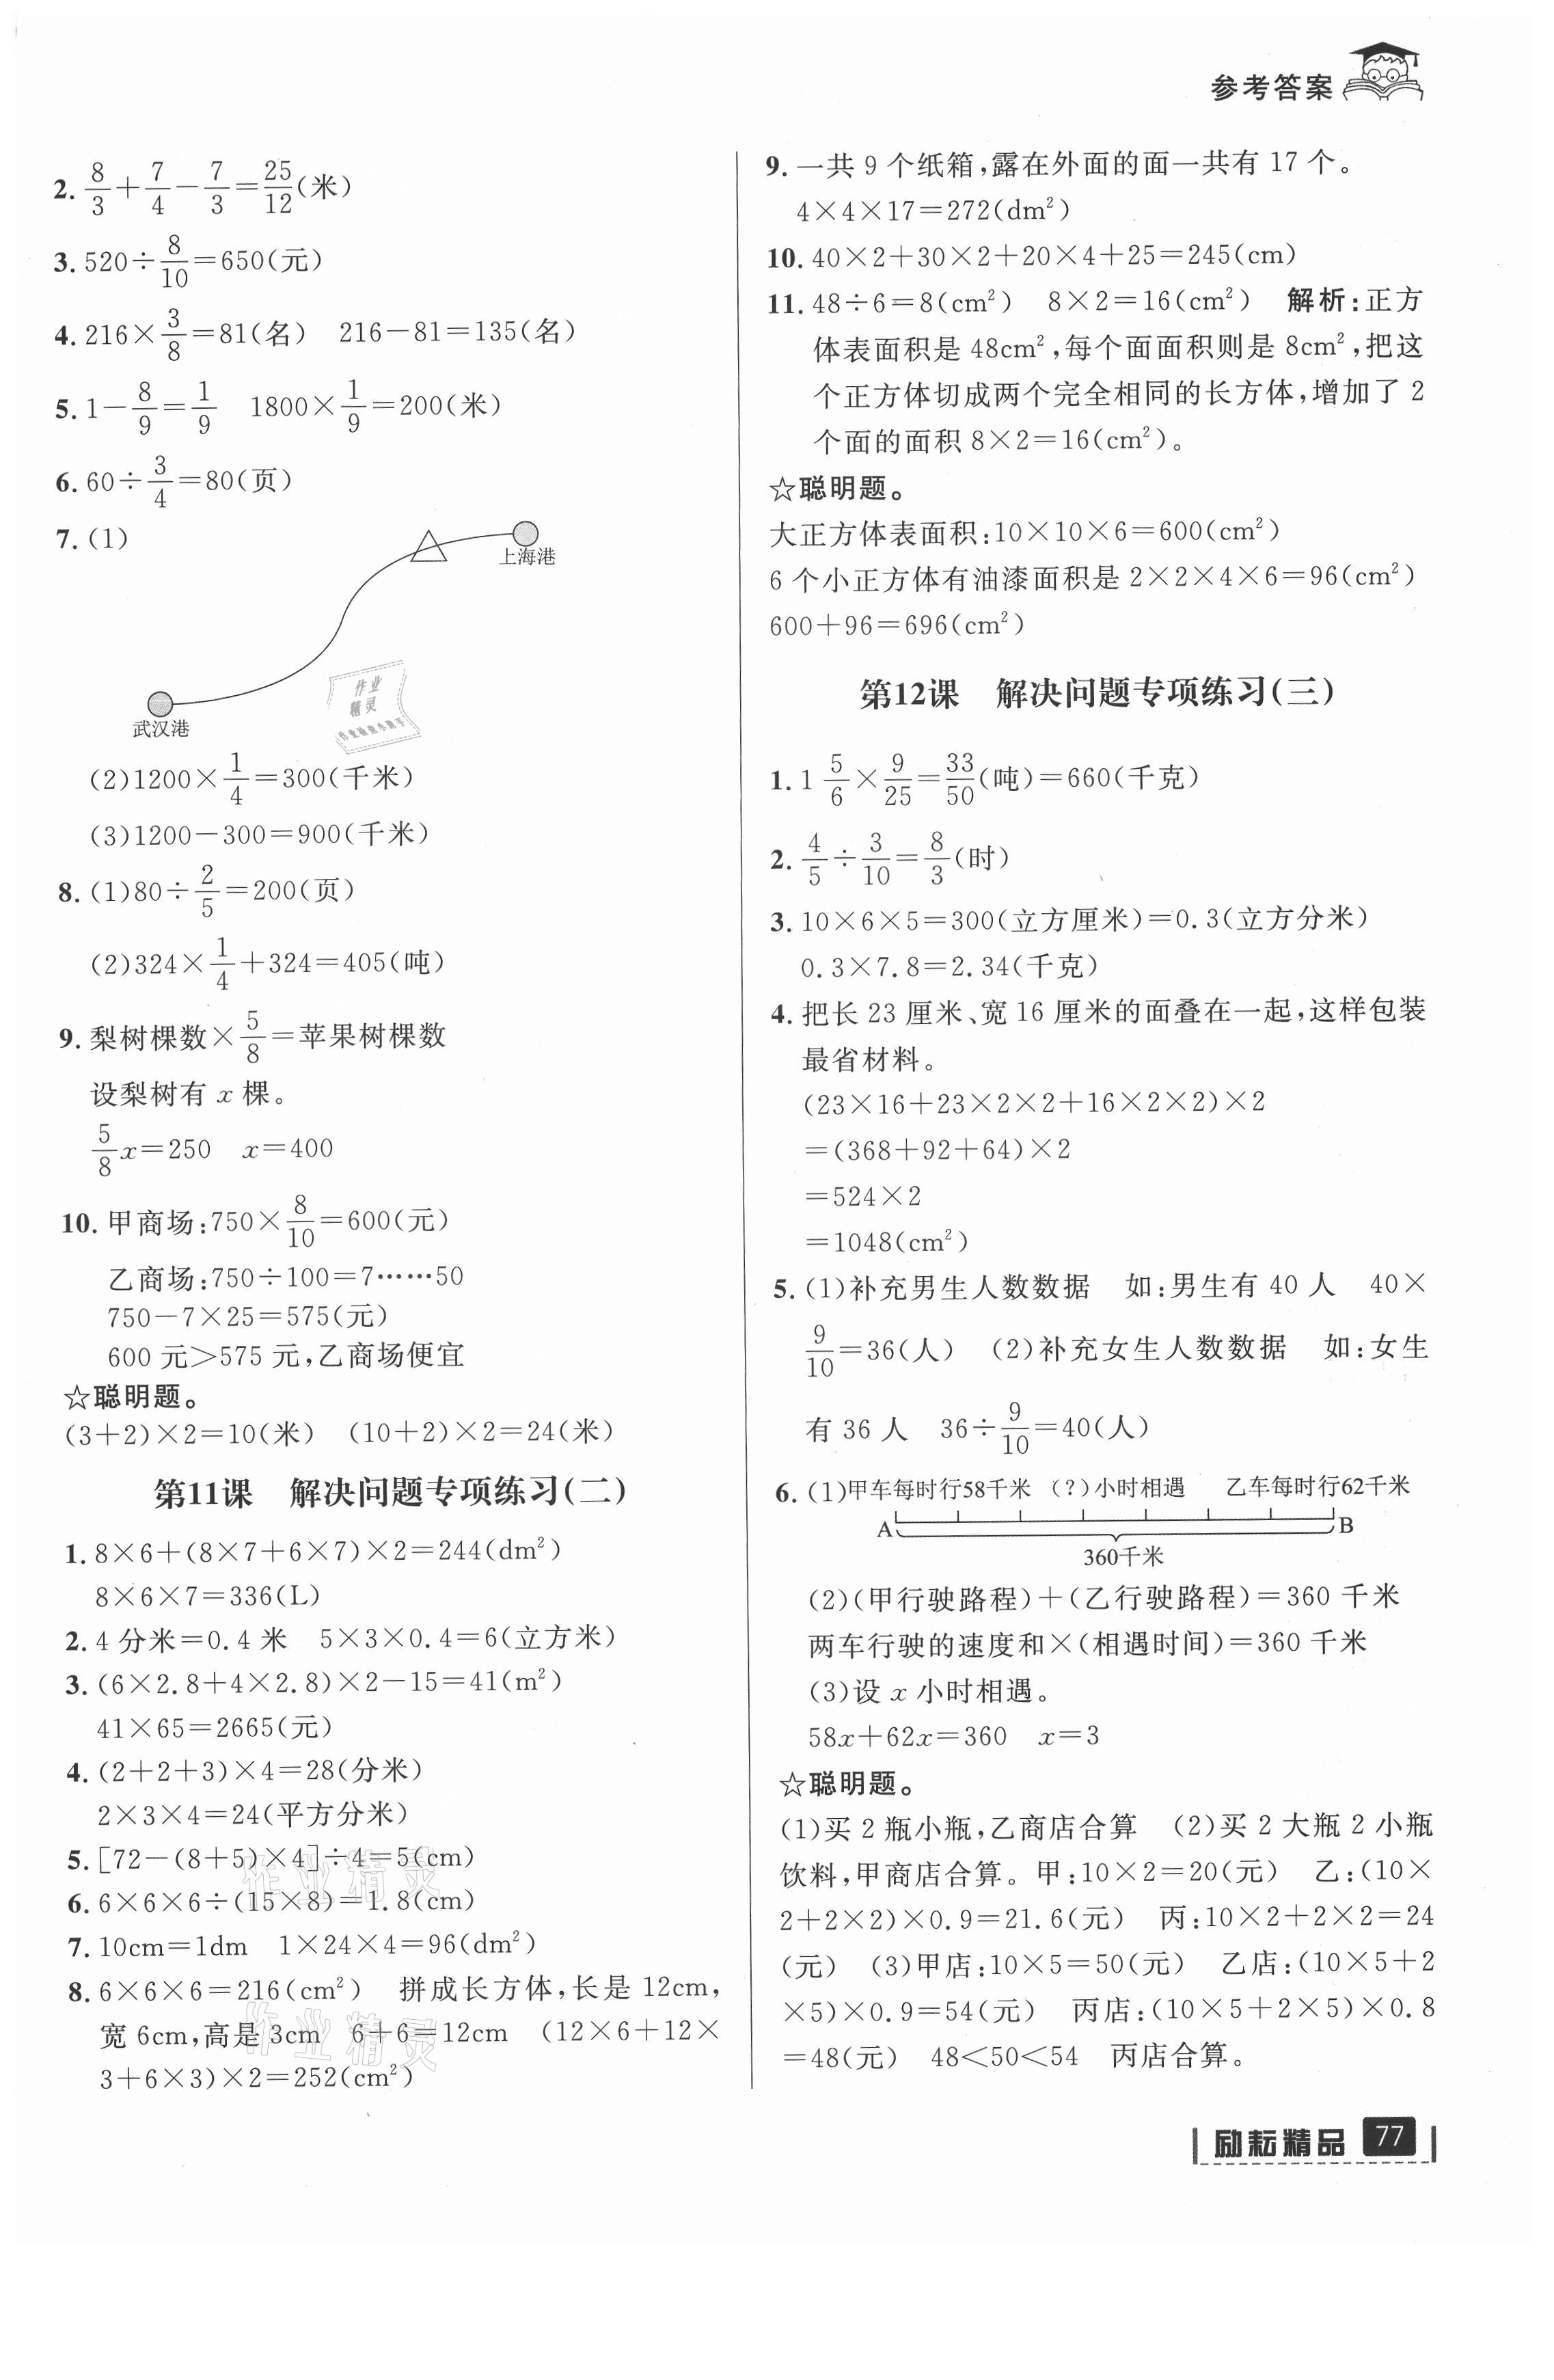 参考答案
2. 8/3+7/4-7/3=25/12(米)
3. 520÷8/10=650(元)
4. 216×3/8=81(名) 216-81=135(名)
5. 1-8/9=1/9 1800×1/9=200(米)
6. 60÷3/4=80(页)
7. (1)
上海港
武汉港
(2)1200×1/4=300(千米)
(3)1200-300=900(千米)
8. (1)80÷2/5=200(页)
(2)324×1/4+324=405(吨)
9. 梨树棵数×5/8=苹果树棵数
设梨树有 x 棵。
5/8x=250 x=400
10. 甲商场:750×8/10=600(元)
乙商场:750÷100=7……50
750-7×25=575(元)
600 元>575 元,乙商场便宜
☆聪明题。
(3+2)×2=10(米) (10+2)×2=24(米)
第11课 解决问题专项练习(二)
1. 8×6+(8×7+6×7)×2=244(dm²)
8×6×7=336(L)
2. 4 分米=0.4 米 5×3×0.4=6(立方米)
3. (6×2.8+4×2.8)×2-15=41(m²)
41×65=2665(元)
4. (2+2+3)×4=28(分米)
2×3×4=24(平方分米)
5. [72-(8+5)×4]÷4=5(cm)
6. 6×6×6÷(15×8)=1.8(cm)
7. 10cm=1dm 1×24×4=96(dm²)
8. 6×6×6=216(cm²) 拼成长方体,长是 12cm,
宽 6cm,高是 3cm 6+6=12cm (12×6+12×
3+6×3)×2=252(cm²)
9. 一共 9 个纸箱,露在外面的面一共有 17 个。
4×4×17=272(dm²)
10. 40×2+30×2+20×4+25=245(cm)
11. 48÷6=8(cm²) 8×2=16(cm²) 解析:正方
体表面积是 48cm²,每个面面积则是 8cm²,把这
个正方体切成两个完全相同的长方体,增加了 2
个面的面积 8×2=16(cm²)。
☆聪明题。
大正方体表面积:10×10×6=600(cm²)
6 个小正方体有油漆面积是 2×2×4×6=96(cm²)
600+96=696(cm²)
第12课 解决问题专项练习(三)
1. 1 5/6×9/25=33/50(吨)=660(千克)
2. 4/5÷3/10=8/3(时)
3. 10×6×5=300(立方厘米)=0.3(立方分米)
0.3×7.8=2.34(千克)
4. 把长 23 厘米、宽 16 厘米的面叠在一起,这样包装
最省材料。
(23×16+23×2×2+16×2×2)×2
=(368+92+64)×2
=524×2
=1048(cm²)
5. (1)补充男生人数数据 如:男生有 40 人 40×
9/10=36(人) (2)补充女生人数数据 如:女生
有 36 人 36÷9/10=40(人)
6. (1)甲车每时行58千米 (?)小时相遇 乙车每时行62千米
A B
360千米
(2)(甲行驶路程)+(乙行驶路程)=360 千米
两车行驶的速度和×(相遇时间)=360 千米
(3)设 x 小时相遇。
58x+62x=360 x=3
☆聪明题。
(1)买 2 瓶小瓶,乙商店合算 (2)买 2 大瓶 2 小瓶
饮料,甲商店合算。甲:10×2=20(元) 乙:(10×
2+2×2)×0.9=21.6(元) 丙:10×2+2×2=24
(元) (3)甲店:10×5=50(元) 乙店:(10×5+2
×5)×0.9=54(元) 丙店:(10×5+2×5)×0.8
=48(元) 48<50<54 丙店合算。
作业精灵
作业精灵
作业精灵
励耘精品 77